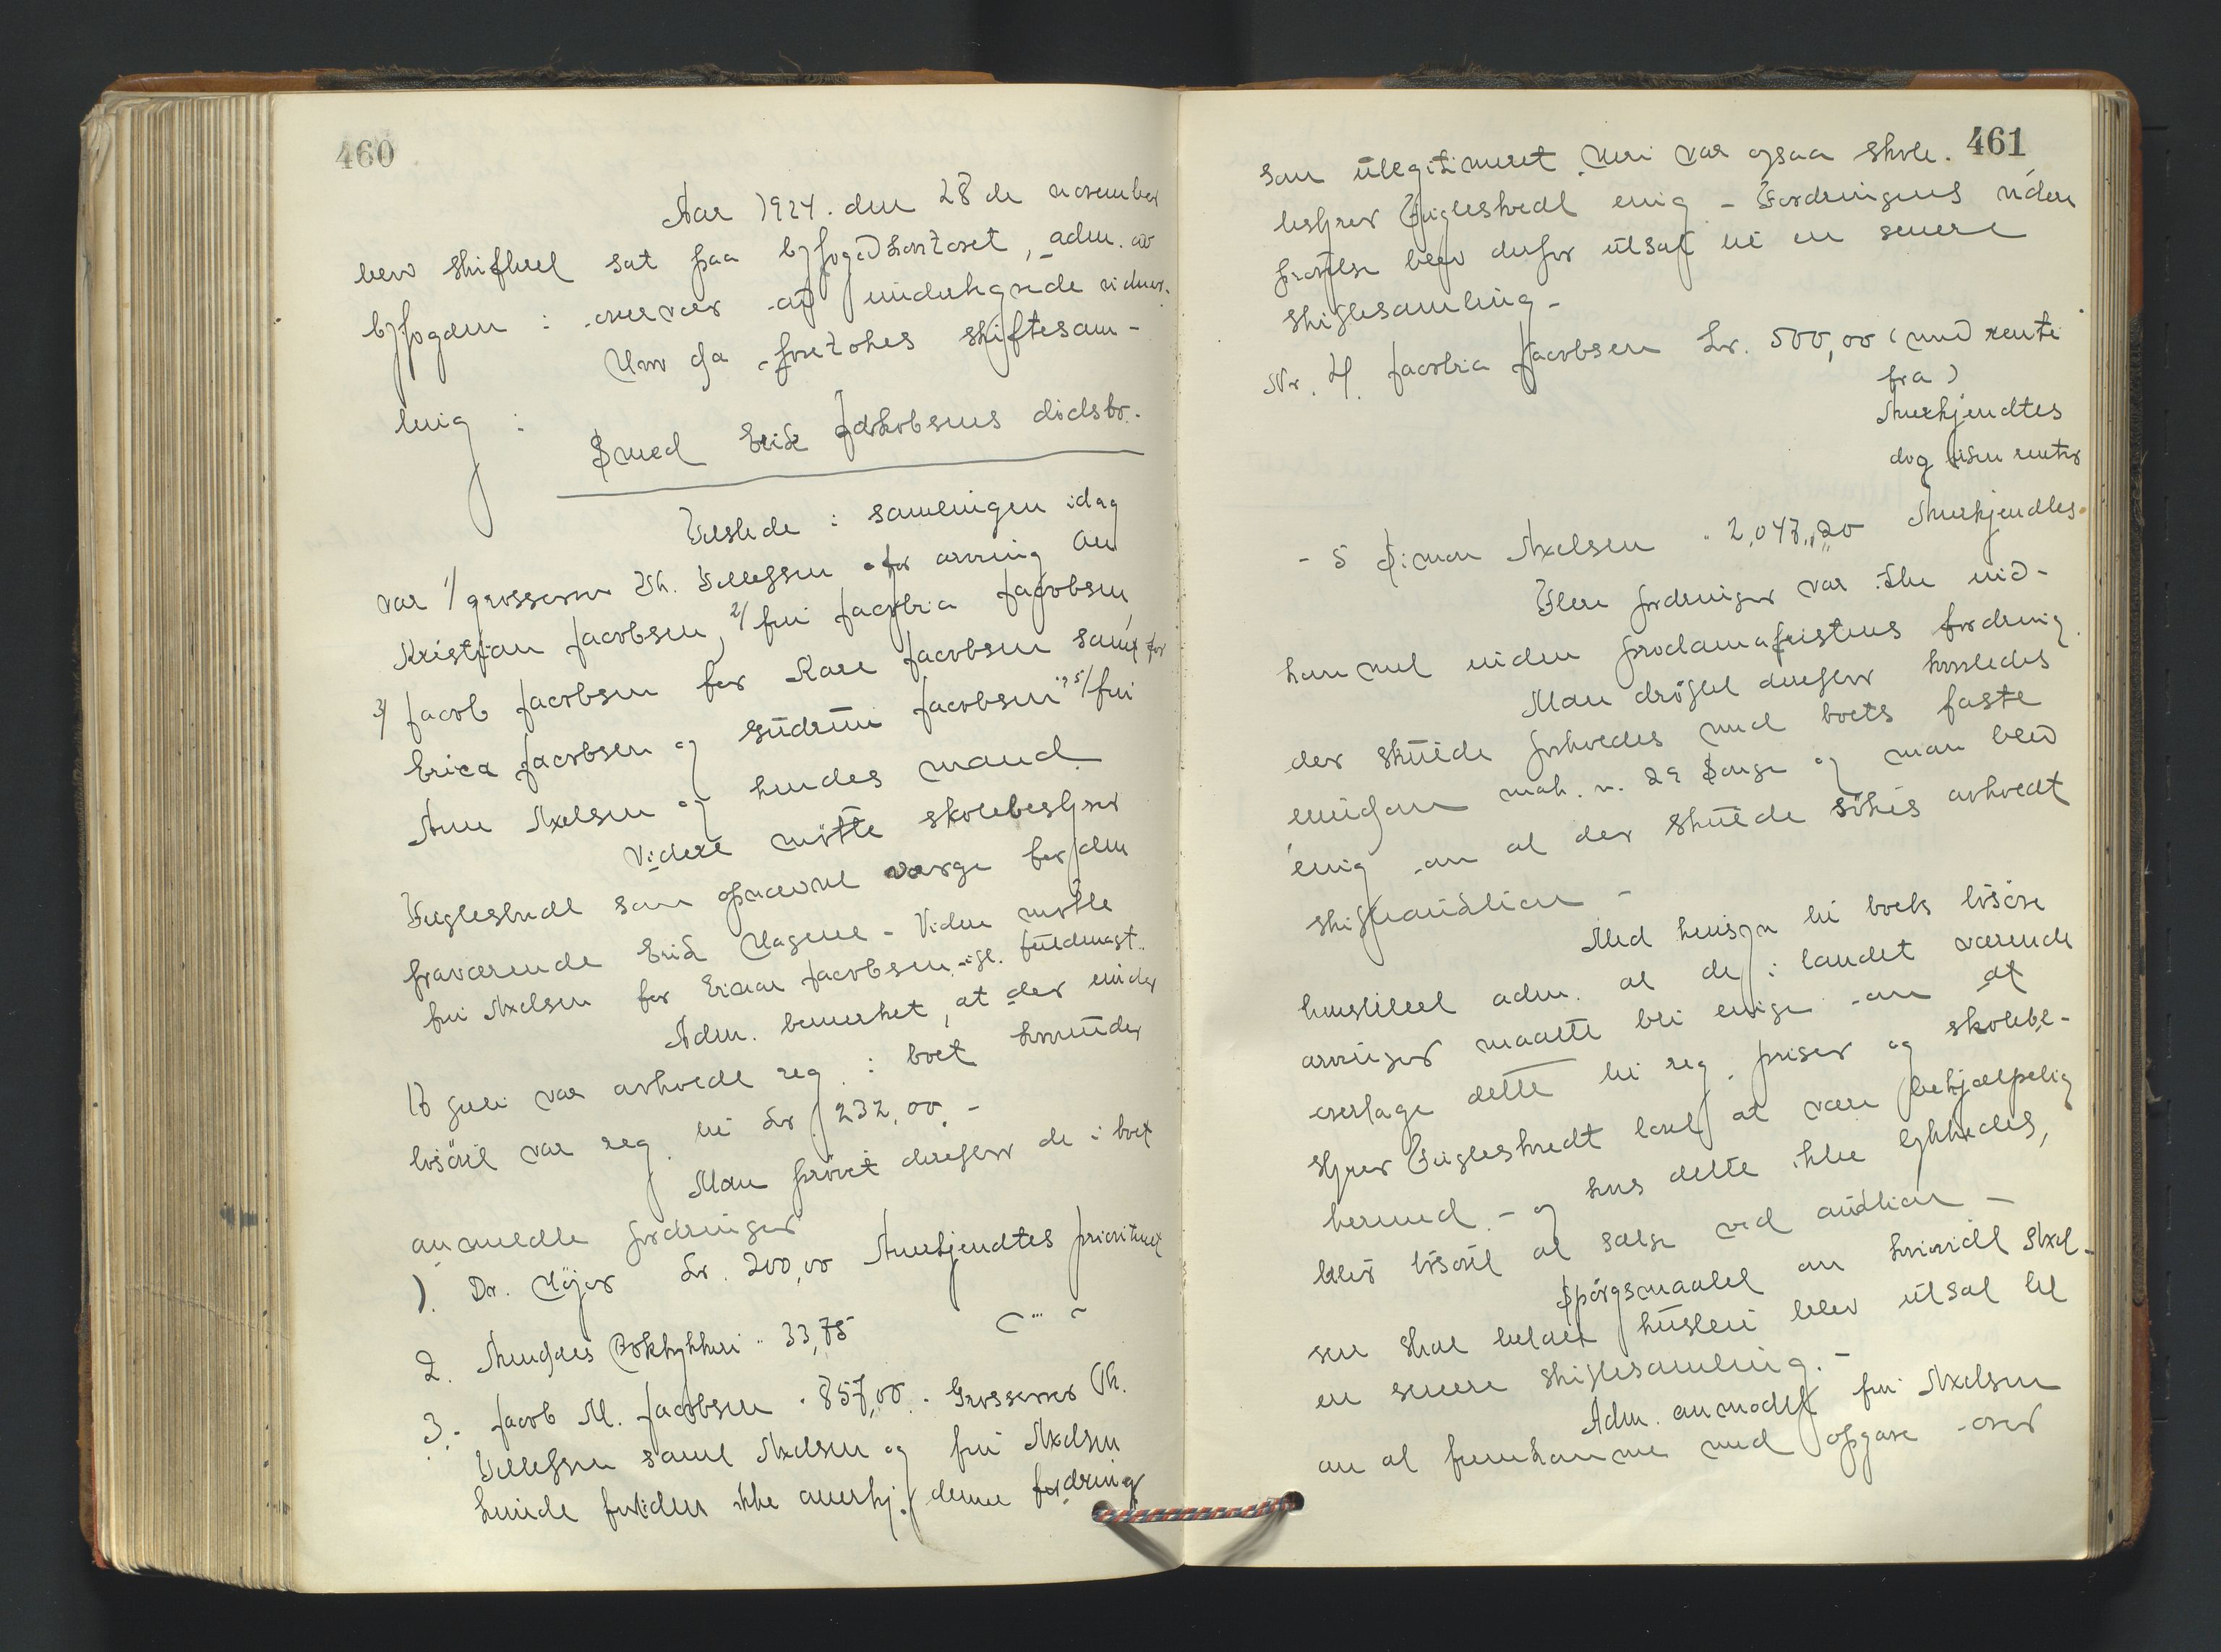 460
Aar 1924. den 28 de november
blev skifteret sat paa byfogedkontoret, adm. av
byfogden i overvær av undertegnede vidner.
Hvor da foretokes skiftesam-
ling i
Smed Erik Jakobsens dødsbo.
Tilstede i samlingen idag
var 1/ grosserer Th. Tellefsen for arving Au
Kristian Jacobsen, 2/ fru Jacobia Jacobsen,
3/ Jacob Jacobsen for Kare Jacobsen samt for
Erica Jacobsen og Gudrun Jacobsen, 5/ fru
Anne Axelsen og hendes mand
Videre møtte skolebestyrer
Fuglestvedt som opnævnt værge for den
fraværende Erik Magene - Viden møtte
fru Axelsen for Erickar Jacobsen igl. fuldmagt.
Adm. bemerket, at der under
17 juli var avholdt reg. i boet hvorunder
løsöret var reg. til kr. 232,00 -
Man prøvet derefter de i boet
anmeldte fordringer
1. Dr. Møjer kr. 200,00 Anerkjendtes prioritert
2. Arendals Boktrykkeri " 33,75 — " —
3. - Jacob M. Jacobsen " 857,00. Grosserer Th.
Tellefsen samt Axelsen og fru Axelsen
kunde foreløpig ikke anerkj. denne fordring
461
som ulegitimeret. Heri var ogsaa skole-
bestyrer Fuglestvedt enig - Fordringens videre
prøvelse blev derfor utsat til en senere
skiftesamling -
Nr. 4. Jacobia Jacobsen kr. 500,00 (med rente
fra )
Anerkjendtes
dog uten renter
- 5 Simon Axelsen " 2,047,20 Anerkjendtes.
Flere fordringer var ikke ind-
kommet inden proclamafristens fordring.
Man drøftet derefter hvorledes
der skulde forholdes med boets faste
eiendom mat. n. 29 Songe og man blev
enig om at der skulde søkes avholdt
skifteauktion -
Med hensyn til boets løsøre
henstillet adm. at de i landet værende
arvinger maatte bli enige om at
overtage dette til reg. priser og skolebe-
styrer Fuglestvedt lovet at være behjælpelig
hermed. - og hvis dette ikke lykkedes,
blev løsöret at sælge ved auktion -
Spørgsmaalet om hvorvidt Axel-
sen skal betale husleie blev utsat til
en senere skiftesamling. -
Adm. anmodet fru Axelsen
om at fremkomme med opgave over